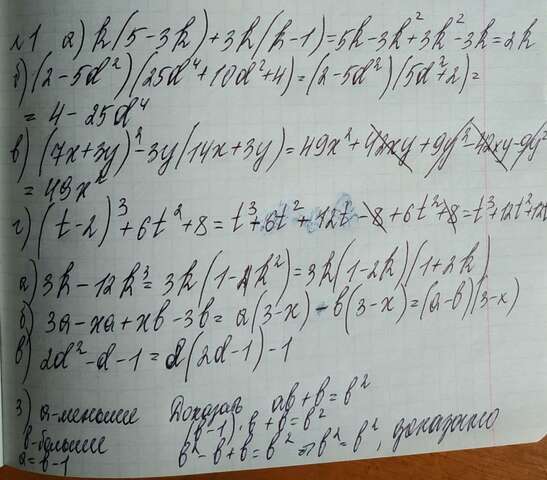 №1 а) k(5-3k)+3k(k-1)=5k-3k²+3k²-3k=2k
б) (2-5d²)(25d⁴+10d²+4)=(2-5d²)(5d²+2)=
=4-25d⁴
в) (7x+3y)²-3y(14x+3y)=49x²+42xy+9y²-42xy-9y²
=49x²
г) (t-2)³+6t²+8=t³+6t²+12t-8+6t²+8=t³+12t²+12t
а) 3k-12k³=3k(1-4k²)=3k(1-2k)(1+2k)
б) 3a-xa+xb-3b=a(3-x)-b(3-x)=(a-b)(3-x)
в) 2d²-d-1=d(2d-1)-1
3) a-меньшее Доказать ab+b=b²
b-большее (b-1)·b+b=b²
a=b-1 b²-b+b=b² ⇒ b²=b², доказано